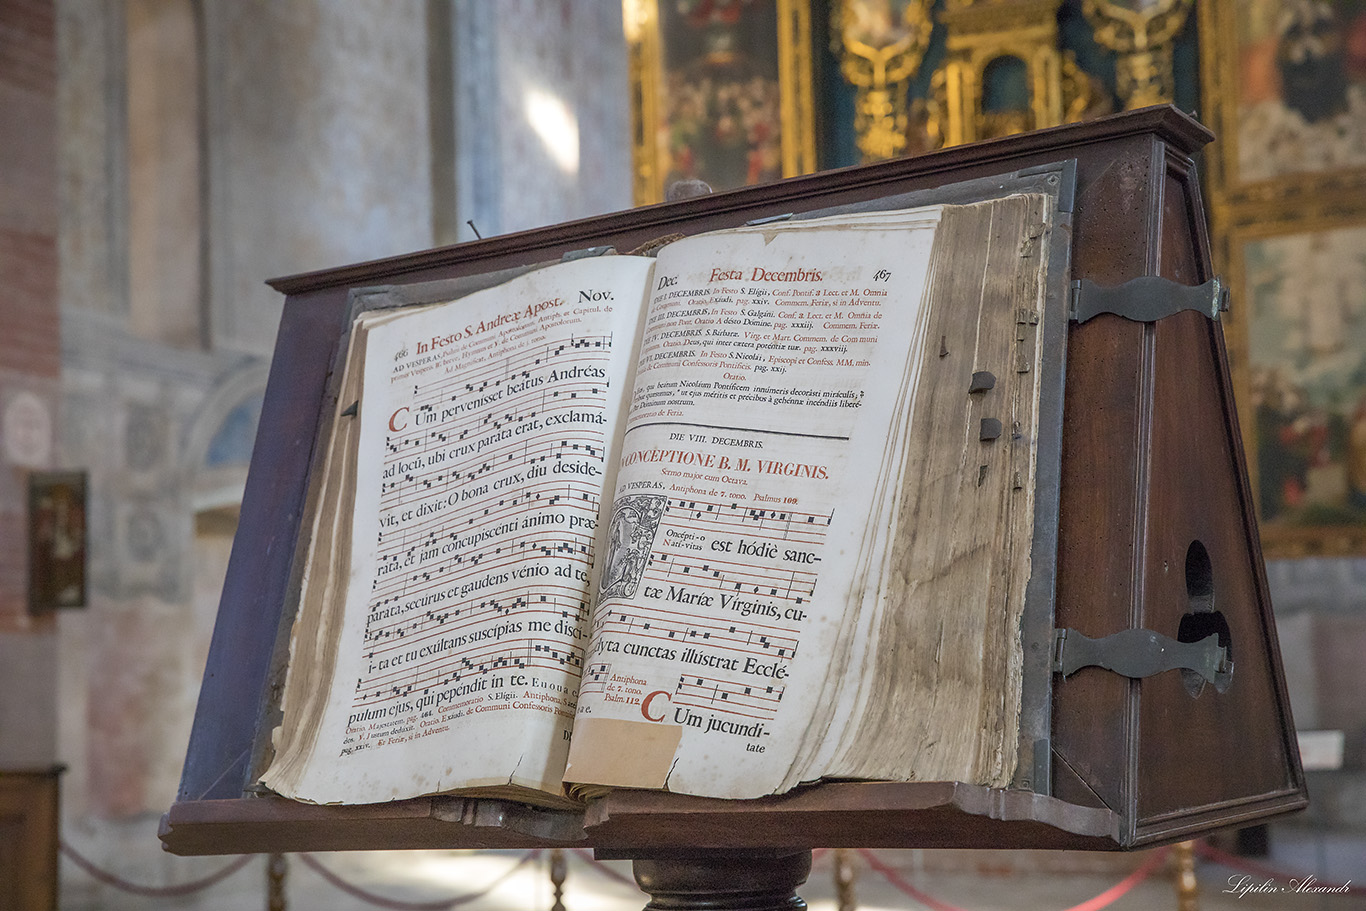 466 In Festo S. Andreæ Apost. Nov.
AD VESPERAS, Psalmi de Communi Apostolorum. Antiph. et Capitul. de
primis Vesperis. R. brevi, Hymnus et V. de Communi Apostolorum.
Ad Magnificat, Antiphona de 1. tono.
CUm pervenisset beatus Andréas
ad locũ, ubi crux parata erat, exclamá-
vit, et dixit: O bona crux, diu deside-
rata, et jam concupiscénti ánimo præ-
parata, secúrus et gaudens vénio ad te,
i-ta et tu exúltans suscípias me discí-
pulum ejus, qui pepéndit in te. E u o u a e.
Oratio. Majestatem, pag. 464. Commemoratio S. Eligii. Antiphona,
dos. V. Justum deduxit. Oratio. Exáudi. de Communi Confessoris Pontif
pag. xxiv. Et Feriæ, si in Adventu.
Dec. Festa Decembris. 467
DIE I. DECEMBRIS. In Festo S. Eligii, Conf. Pontif. 2 Lect. et M. Omnia
Oratio. Exáudi, pag. xxiv. Commem. Feriæ, si in Adventu.
DIE III. DECEMBRIS, In Festo S. Galgáni. Conf. 2 Lect. et M. Omnia de
Communi non Pont. Oratio. Adésto Dómine. pag. xxxiij. Commem. Feriæ.
DIE IV. DECEMBRIS. S. Bárbaræ. Virg. et Mart. Commem. de Communi
Oratio. Deus, qui inter cætera poténtiæ tuæ. pag. xxxviij.
DIE VI. DECEMBRIS. In Festo S. Nicolai, Episcopi et Confess. MM. min.
de Communi Confessoris Pontificis. pag. xxij.
Oratio.
qui beátum Nicoláum Pontíficem innúmeris decorásti miráculis;
quæsumus, ut ejus méritis et précibus à gehénnæ incéndiis liberé-
Per Dóminum nostrum.
de Feria.
DIE VIII. DECEMBRIS.
CONCEPTIONE B. M. VIRGINIS.
Sermo major cum Octava.
AD VESPERAS, Antiphona de 7. tono. Psalmus 109.
Concépti-o
Natí-vitas
est hódiè sanc-
tæ Maríæ Vírginis, cu-
cunctas illústrat Ecclé-
Antiphona
de 7. tono.
Psalm. 112.
CUm jucundi-
tate
Lipilin Alexandr